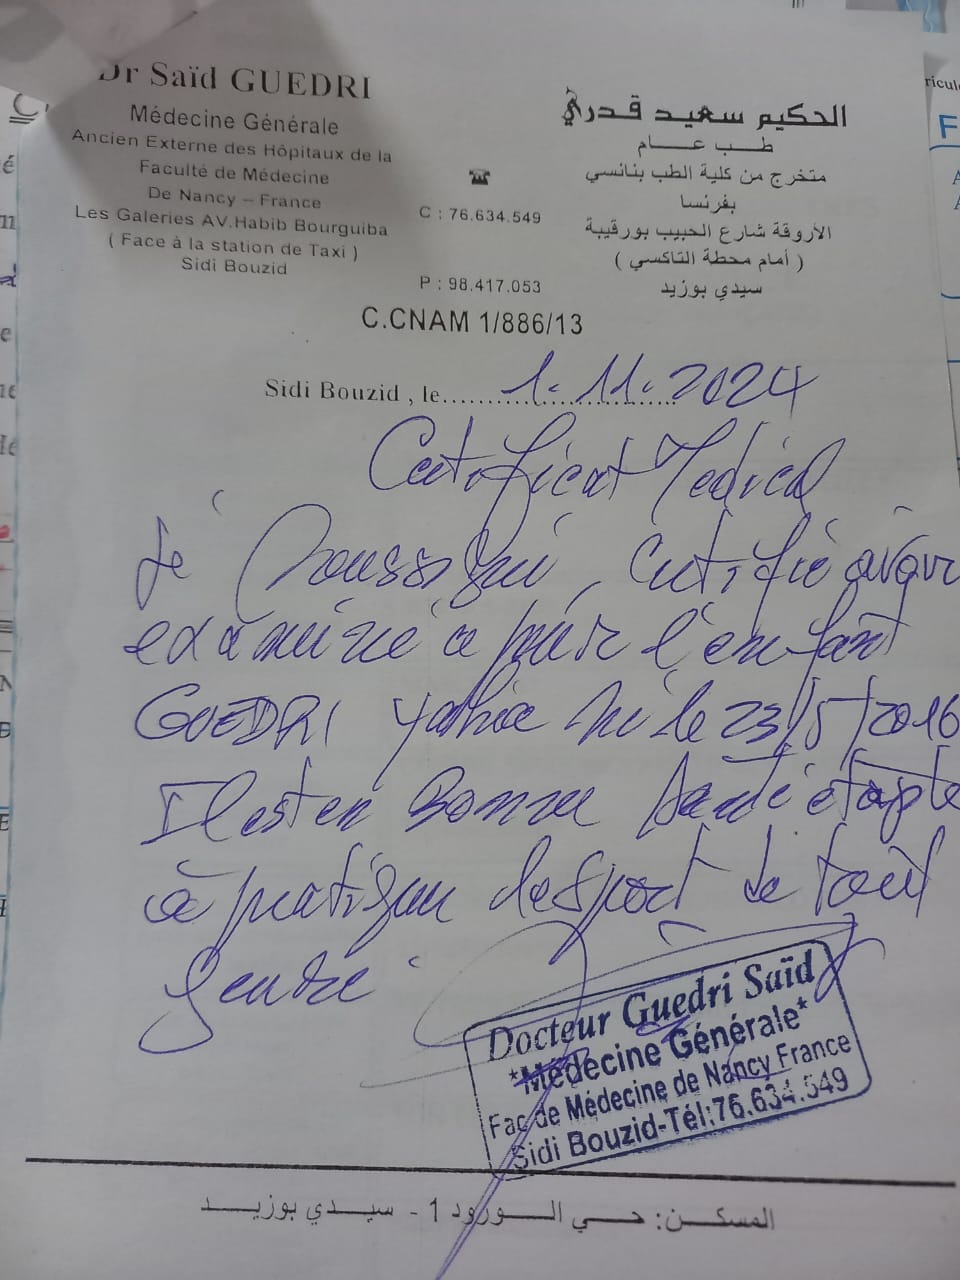 Dr Saïd GUEDRI
Médecine Générale
Ancien Externe des Hôpitaux de la
Faculté de Médecine
De Nancy – France
Les Galeries AV.Habib Bourguiba
( Face à la station de Taxi )
Sidi Bouzid
C : 76.634.549
P : 98.417.053
الحكيم سعيد قدري
طب عام
متخرج من كلية الطب بنانسي
بفرنسا
الأروقة شارع الحبيب بورقيبة
( أمام محطة التاكسي )
سيدي بوزيد
C.CNAM 1/886/13
Sidi Bouzid , le 1.11.2024
Certificat Medical
Je soussigné, certifie avoir
examiné ce jour l'enfant
GUEDRI Yahia né le 23/5/2016
Il est en Bonne santé et apte
à pratiquer le sport de tout
genre
Docteur Guedri Saïd
*Médecine Générale*
Fac de Médecine de Nancy France
Sidi Bouzid-Tél:76.634.549
المسكن: حي الورود 1 - سيدي بوزيد